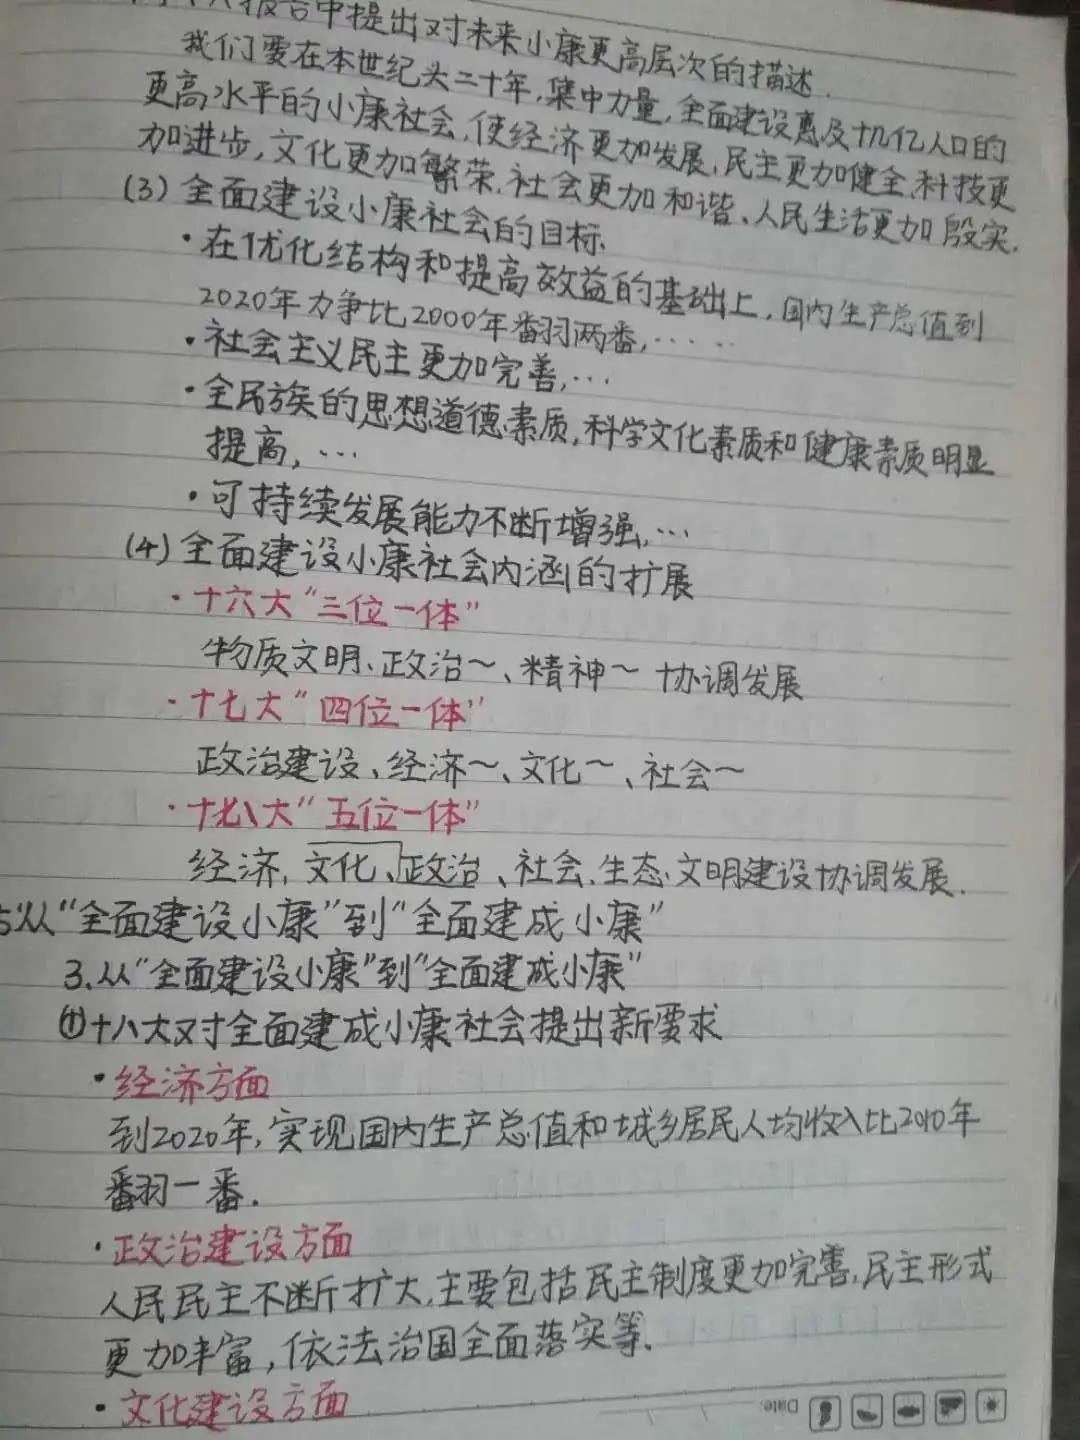 报告中提出对未来小康更高层次的描述.
我们要在本世纪头二十年,集中力量,全面建设惠及十几亿人口的
更高水平的小康社会,使经济更加发展,民主更加健全,科技更
加进步,文化更加繁荣,社会更加和谐、人民生活更加殷实.
(3)全面建设小康社会的目标.
·在优化结构和提高效益的基础上,国内生产总值到
2020年力争比2000年翻两番,……
·社会主义民主更加完善,…
·全民族的思想道德素质,科学文化素质和健康素质明显
提高,…
·可持续发展能力不断增强,…
(4)全面建设小康社会内涵的扩展
·十六大“三位一体”
物质文明、政治~、精神~ 协调发展
·十七大“四位一体”
政治建设、经济~、文化~、社会~
·十八大“五位一体”
经济,文化、政治、社会、生态文明建设协调发展.
从“全面建设小康”到“全面建成小康”
3.从“全面建设小康”到“全面建成小康”
①十八大对全面建成小康社会提出新要求
·经济方面
到2020年,实现国内生产总值和城乡居民人均收入比2010年
翻一番.
·政治建设方面
人民民主不断扩大,主要包括民主制度更加完善,民主形式
更加丰富,依法治国全面落实等.
·文化建设方面
Date: